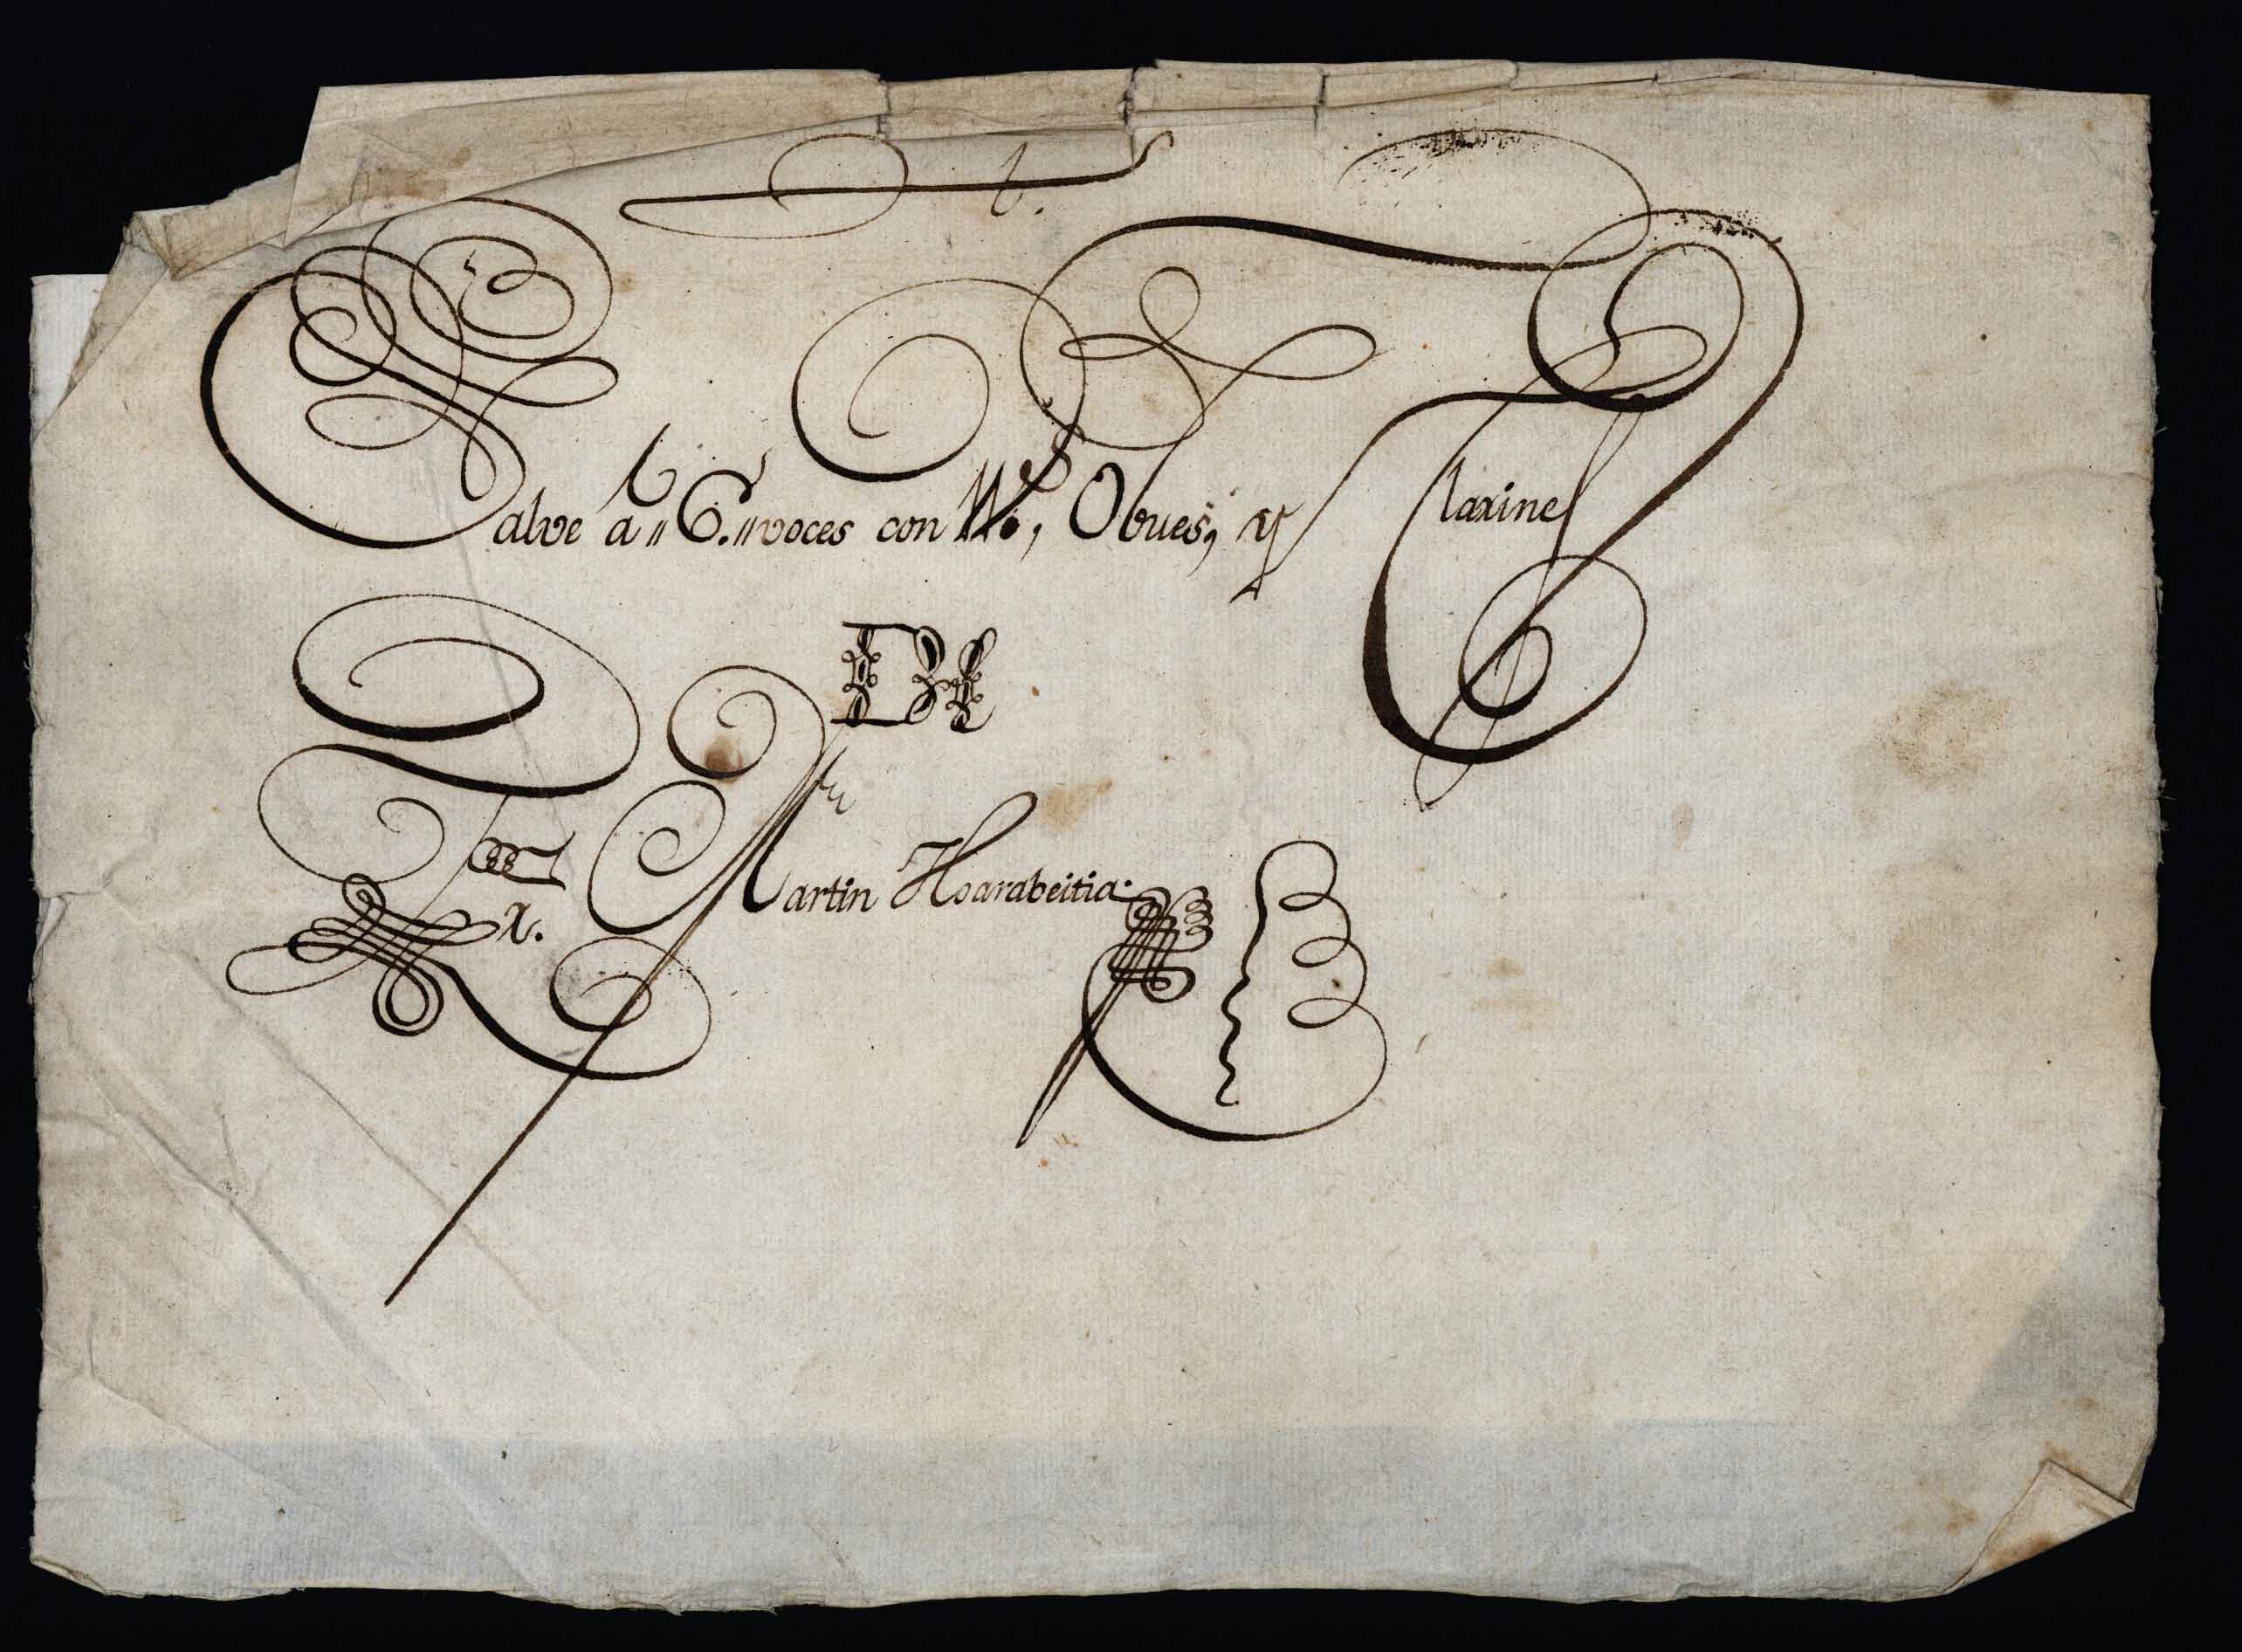 Salve a 6. voces con Vv.s, Obues, y Clarines
DE
Fr. Martin Hoarabeitia.